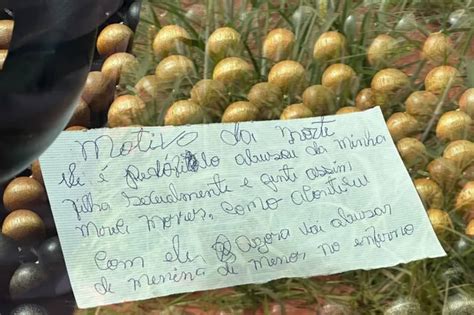 Motivo da morte
ele é Pedófilo abusou da minha
filha sexualmente e quem assim
morre, como aconteceu
com ele. Agora vai abusar
de menina de menor no inferno